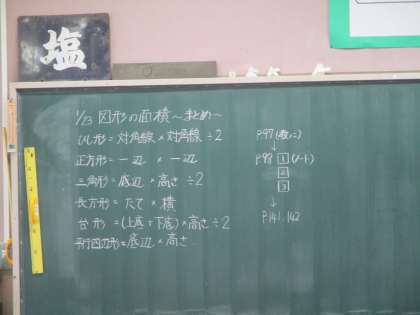 塩
1/13 図形の面積〜まとめ〜
ひし形=対角線×対角線÷2
正方形=一辺×一辺
三角形=底辺×高さ÷2
長方形=たて×横
台形=(上底+下底)×高さ÷2
平行四辺形=底辺×高さ
P.97(教い)
↓
P.98 1(ノート)
2
3
↓
P.141.142